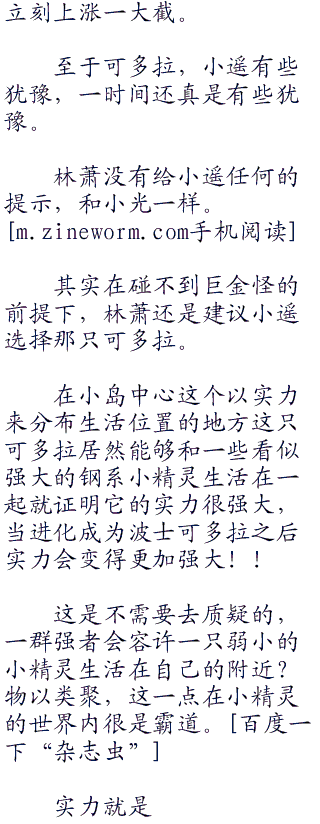 立刻上涨一大截。
至于可多拉，小遥有些
犹豫，一时间还真是有些犹
豫。
林萧没有给小遥任何的
提示，和小光一样。
[m.zineworm.com手机阅读]
其实在碰不到巨金怪的
前提下，林萧还是建议小遥
选择那只可多拉。
在小岛中心这个以实力
来分布生活位置的地方这只
可多拉居然能够和一些看似
强大的钢系小精灵生活在一
起就证明它的实力很强大，
当进化成为波士可多拉之后
实力会变得更加强大！！
这是不需要去质疑的，
一群强者会容许一只弱小的
小精灵生活在自己的附近？
物以类聚，这一点在小精灵
的世界内很是霸道。[百度一
下“杂志虫”]
实力就是